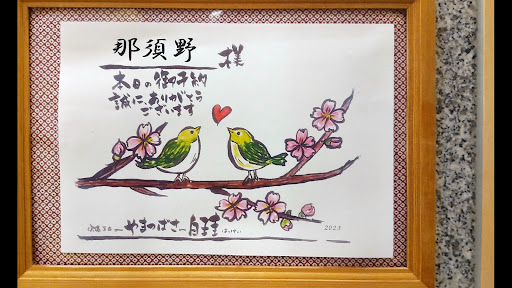 那須野 様
本日の御予納
誠にありがとう
ございます
やまのばさー
2023